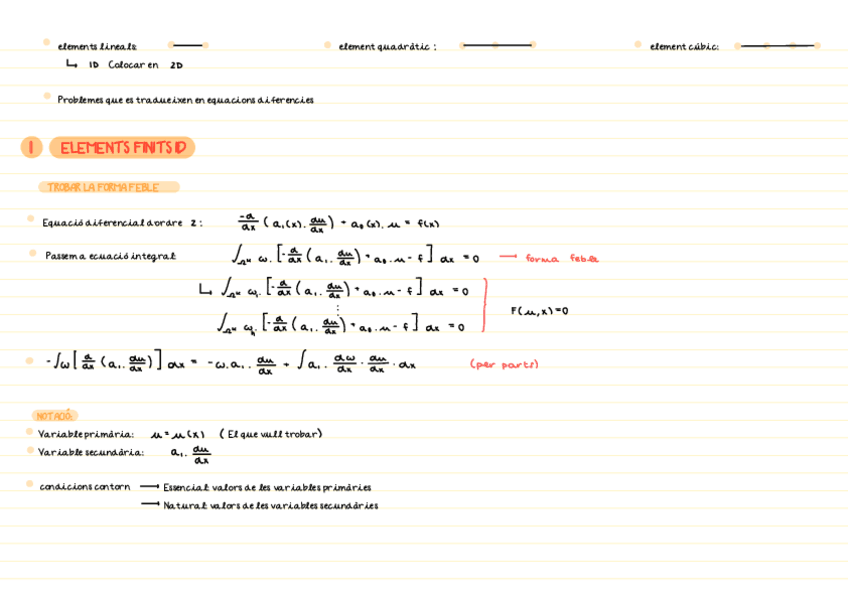 elements lineals:   element quadràtic :   element cúbic:
↳ 1D Colocar en 2D
Problemes que es tradueixen en equacions diferencies
1 ELEMENTS FINITS 1D
TROBAR LA FORMA FEBLE
Equació diferencial d'ordre 2 : -d/dx ( a₁(x) . du/dx ) + a₀(x) . u = f(x)
Passem a ecuació integral ∫Ωᴷ ω . [ -d/dx ( a₁ . du/dx ) + a₀ . u - f ] dx = 0 → forma feble
↳ ∫Ωᴷ ω₁ [ -d/dx ( a₁ . du/dx ) + a₀ . u - f ] dx = 0
⋮ F(u,x)=0
∫Ωᴷ ωₙ [ -d/dx ( a₁ . du/dx ) + a₀ . u - f ] dx = 0
-∫ω [ d/dx ( a₁ . du/dx ) ] dx = -ω . a₁ . du/dx + ∫ a₁ . dω/dx . du/dx . dx (per parts)
NOTACIÓ:
Variable primària: u = u(x) ( El que vull trobar)
Variable secundària: a₁ . du/dx
condicions contorn → Essencial: valors de les variables primàries
→ Natural: valors de les variables secundàries